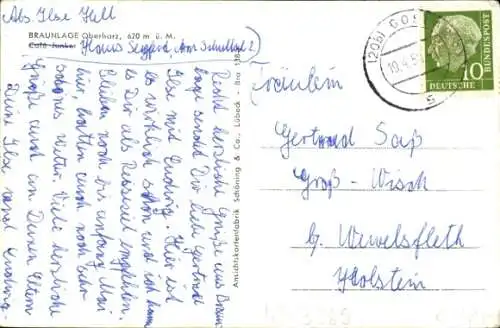 Abs. Ilse Hell
BRAUNLAGE Oberharz, 620 m ü. M.
Café Junke
Haus Seyfferd, Am Schultal 2
Recht herzliche Grüße aus Braun-
lage sendet Dir liebe Gertrud
Ilse mit Ludwig. Hier ist
es wirklich schön und ich kann
es Dir als Reiseziel empfehlen.
Bleiben noch bis anfang Mai
hier, hatten auch noch sehr
schönes Wetter. Viele herzliche
Grüße auch an Deine Eltern
Deine Ilse und Ludwig.
Ansichtskartenfabrik Schöning & Co., Lübeck
(20b) GOS
10
DEUTSCHE BUNDESPOST
Fräulein
Gertrud Saß
Groß-Wisch
b. Wewelsfleth
Holstein